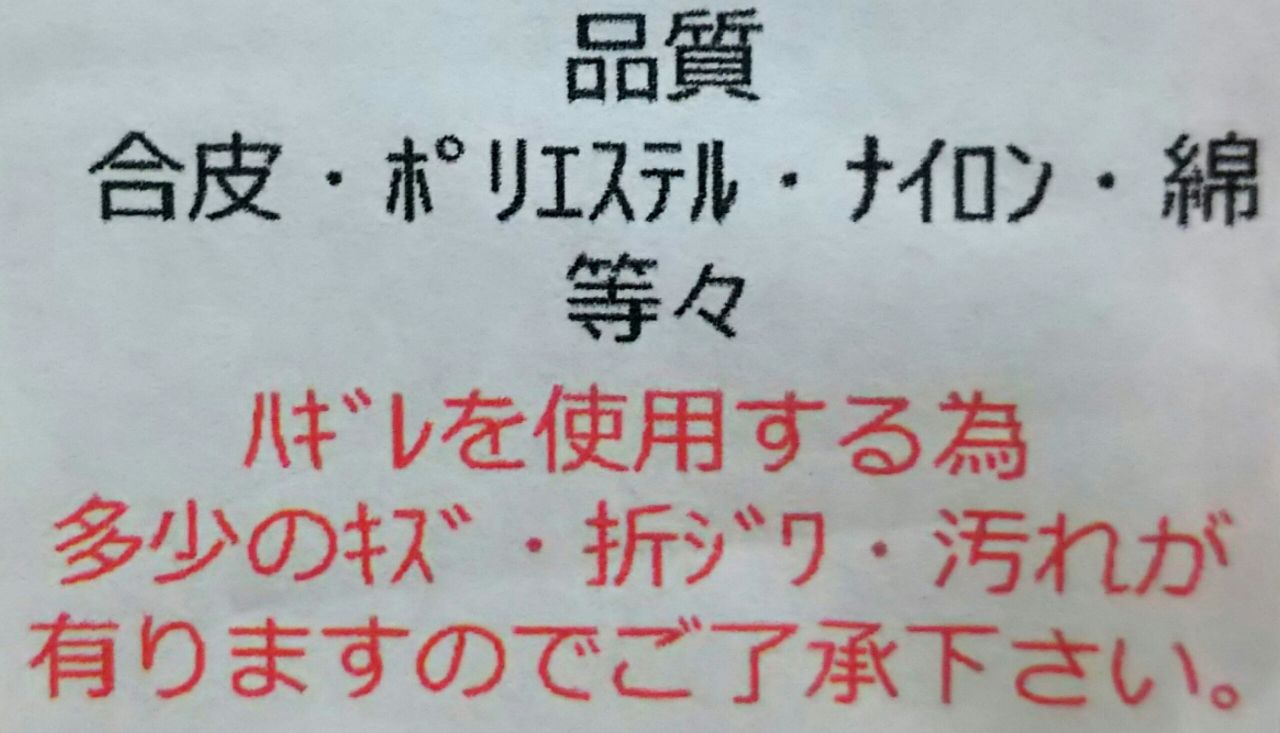 品質
合皮・ﾎﾟﾘｴｽﾃﾙ・ﾅｲﾛﾝ・綿
等々
ﾊｷﾞﾚを使用する為
多少のｷｽﾞ・折ｼﾞﾜ・汚れが
有りますのでご了承下さい。